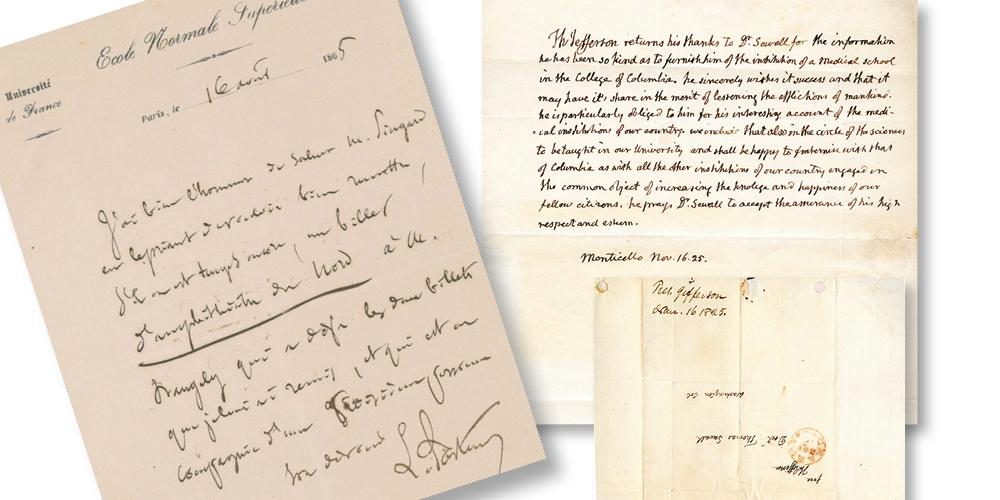 Ecole Normale Supérieu
Université
de France
Paris, le 16 août 1865
J'ai bien l'honneur de saluer M. Pingard
en le priant de vouloir bien remettre,
s'il en est temps encore, un billet
d'amphithéâtre du Nord à M.
qui a déjà les deux billets
que je lui ai remis, et qui est en
compagnie d'une troisième personne
Son dévoué
L. Pasteur
Th Jefferson returns his thanks to Dr. Sewall for the information
he has been so kind as to furnish him of the institution of a Medical school
in the College of Columbia. he sincerely wishes it success and that it
may have it's share in the merit of lessening the afflictions of mankind.
he is particularly obliged to him for his interesting account of the medi-
-cal institutions of our country. we include that also in the circle of the sciences
to be taught in our University and shall be happy to fraternise with that
of Columbia as with all the other institutions of our country engaged in
the common object of increasing the knolege and happiness of our
fellow citizens. he prays Dr. Sewall to accept the assurance of his high
respect and esteem.
Monticello Nov. 16. 25.
Jefferson
16 1825.
Washington Col
Doct. Thomas Sewall
free
Th Jefferson